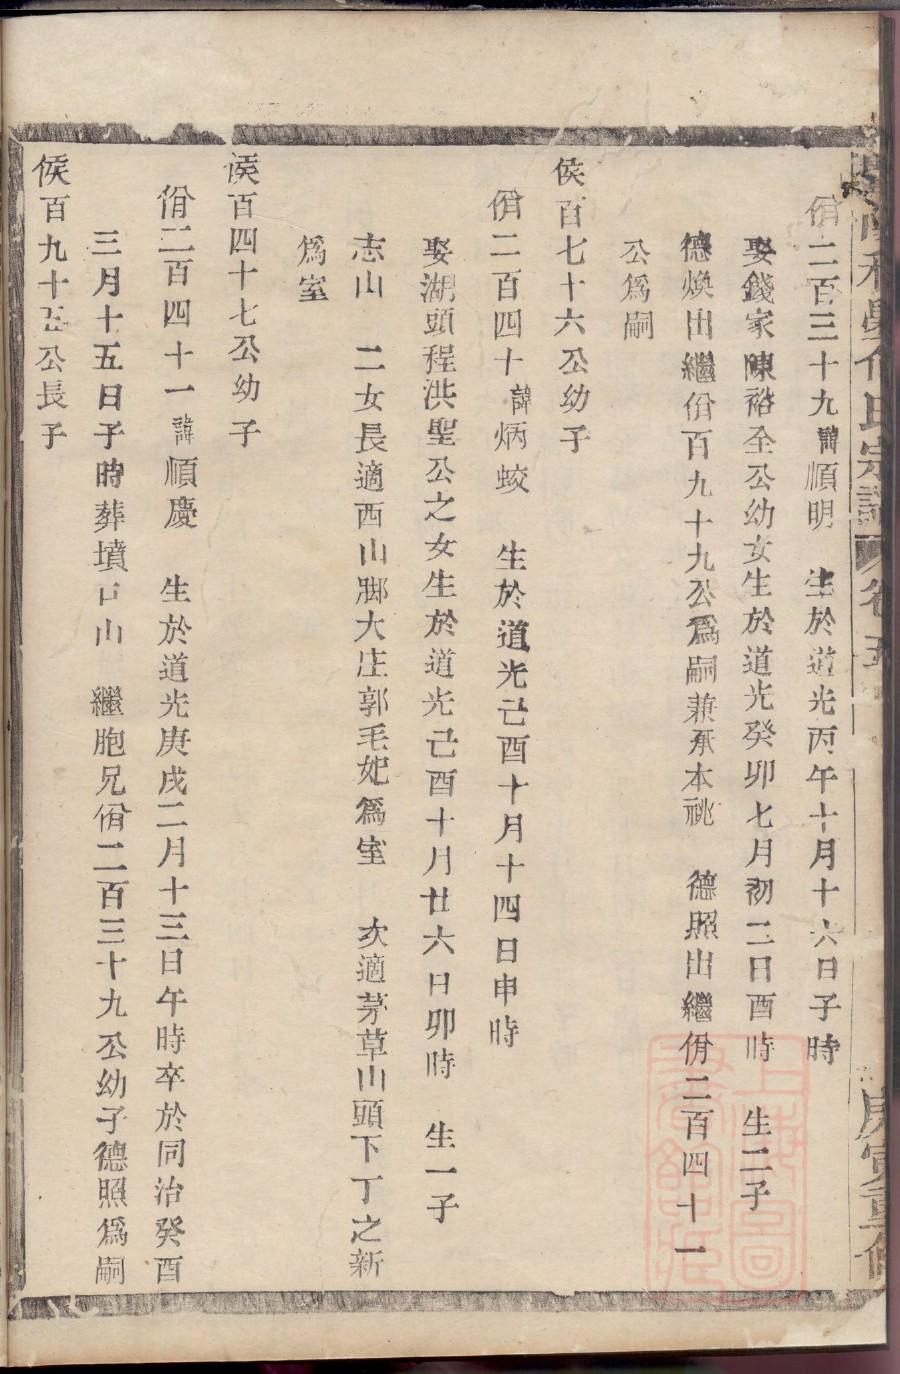 佾二百三十九諱順明　生於道光丙午十月十六日子時
娶錢家陳裕全公幼女生於道光癸卯七月初二日酉時　生二子
德煥出繼佾百九十九公爲嗣兼承本祧　德照出繼佾二百四十一
公爲嗣
俟百七十六公幼子
佾二百四十諱炳蛟　生於道光己酉十月十四日申時
娶湖頭程洪聖公之女生於道光己酉十月廿六日卯時　生一子
志山　二女長適西山腳大庄郭毛妑爲室　次適茅草山頭下丁之新
爲室
俟百四十七公幼子
佾二百四十一諱順慶　生於道光庚戌二月十三日午時卒於同治癸酉
三月十五日子時葬墳山　繼胞兄佾二百三十九公幼子德照爲嗣
俟百九十五公長子
氏宗譜　卷五　庚寅重修
上海圖書館藏